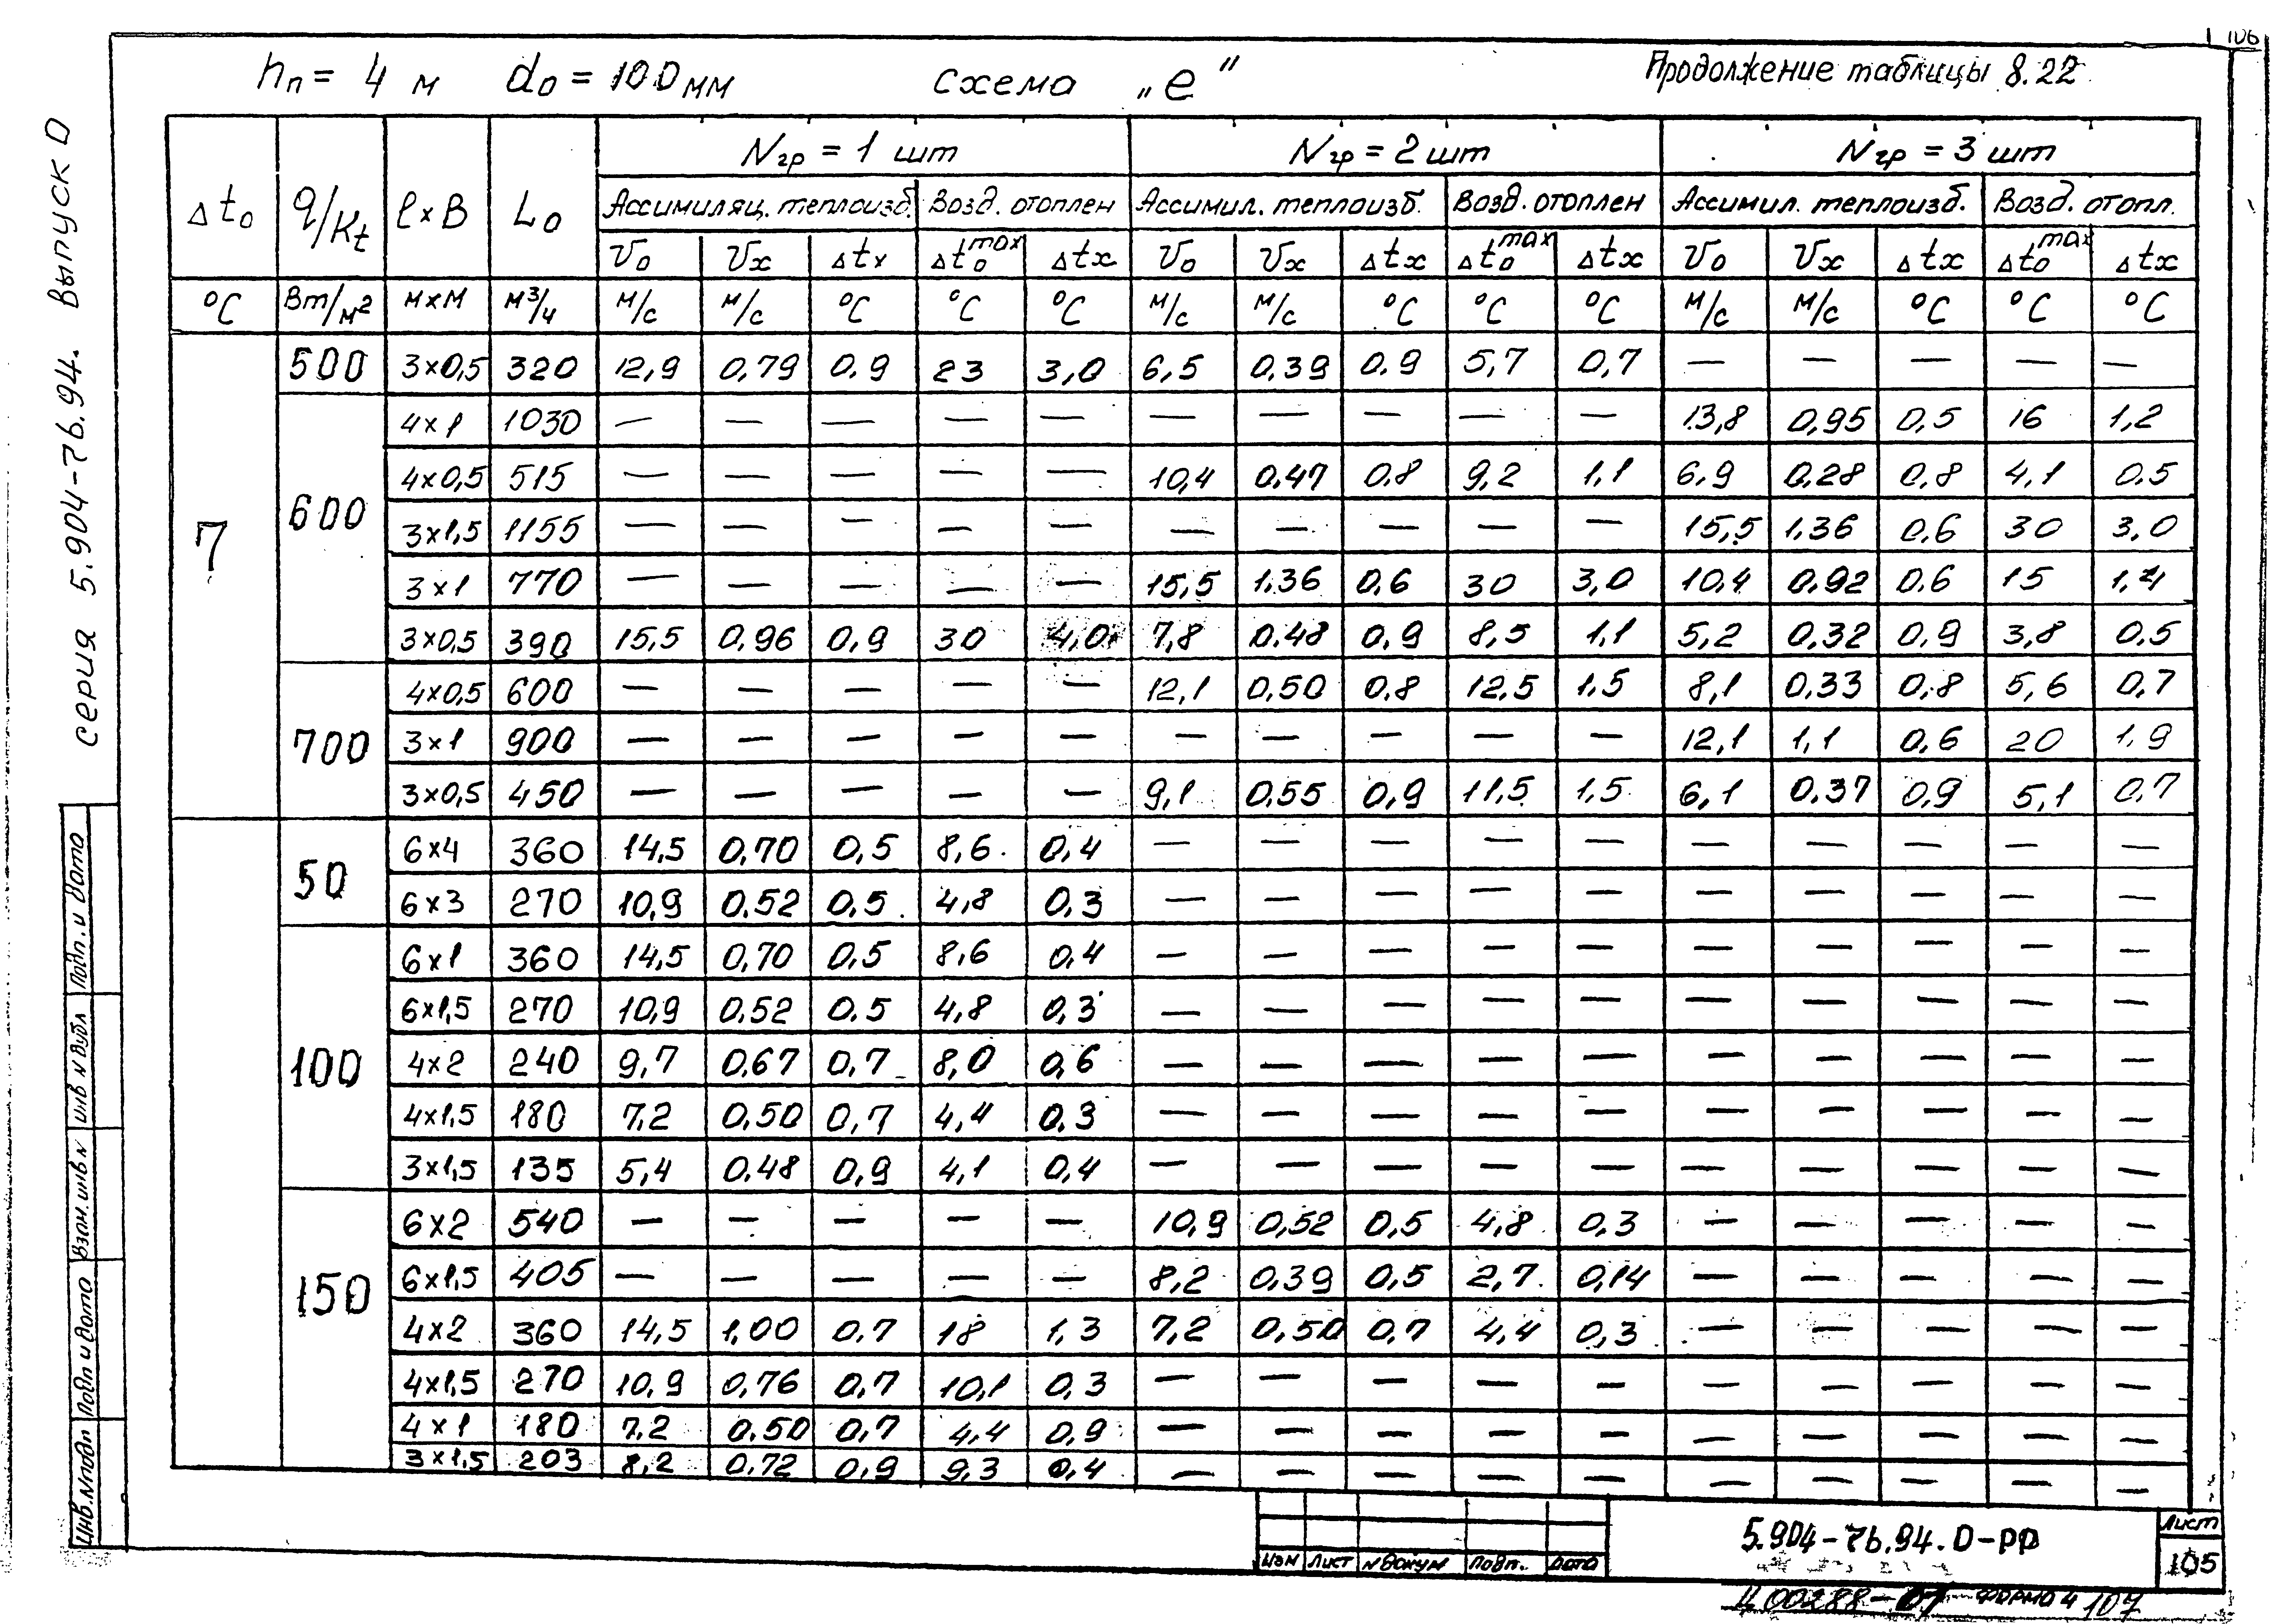 106
hп = 4 м d₀ = 100 мм схема „е" Продолжение таблицы 8.22
серия 5.904-76.94. Выпуск 0
Δt₀ q/Kt ℓ×B L₀ Nгр = 1 шт Nгр = 2 шт Nгр = 3 шт
Ассимиляц. теплоизб. Возд. отоплен Ассимил. теплоизб. Возд. отоплен Ассимил. теплоизб. Возд. отопл.
V₀ Vx Δtx Δt₀max Δtx V₀ Vx Δtx Δt₀max Δtx V₀ Vx Δtx Δt₀max Δtx
°C Вт/м² м×м м³/ч м/с м/с °C °C °C м/с м/с °C °C °C м/с м/с °C °C °C
7 500 3×0,5 320 12,9 0,79 0,9 23 3,0 6,5 0,39 0,9 5,7 0,7 — — — — —
600 4×1 1030 — — — — — — — — — — 13,8 0,95 0,5 16 1,2
4×0,5 515 — — — — — 10,4 0,47 0,8 9,2 1,1 6,9 0,28 0,8 4,1 0,5
3×1,5 1155 — — — — — — — — — — 15,5 1,36 0,6 30 3,0
3×1 770 — — — — — 15,5 1,36 0,6 30 3,0 10,4 0,92 0,6 15 1,4
3×0,5 390 15,5 0,96 0,9 30 4,0 7,8 0,48 0,9 8,5 1,1 5,2 0,32 0,9 3,8 0,5
700 4×0,5 600 — — — — — 12,1 0,50 0,8 12,5 1,5 8,1 0,33 0,8 5,6 0,7
3×1 900 — — — — — — — — — — 12,1 1,1 0,6 20 1,9
3×0,5 450 — — — — — 9,1 0,55 0,9 11,5 1,5 6,1 0,37 0,9 5,1 0,7
50 6×4 360 14,5 0,70 0,5 8,6 0,4 — — — — — — — — — —
6×3 270 10,9 0,52 0,5 4,8 0,3 — — — — — — — — — —
100 6×1 360 14,5 0,70 0,5 8,6 0,4 — — — — — — — — — —
6×1,5 270 10,9 0,52 0,5 4,8 0,3 — — — — — — — — — —
4×2 240 9,7 0,67 0,7 8,0 0,6 — — — — — — — — — —
4×1,5 180 7,2 0,50 0,7 4,4 0,3 — — — — — — — — — —
3×1,5 135 5,4 0,48 0,9 4,1 0,4 — — — — — — — — — —
150 6×2 540 — — — — — 10,9 0,52 0,5 4,8 0,3 — — — — —
6×1,5 405 — — — — — 8,2 0,39 0,5 2,7 0,14 — — — — —
4×2 360 14,5 1,00 0,7 18 1,3 7,2 0,50 0,7 4,4 0,3 — — — — —
4×1,5 270 10,9 0,76 0,7 10,1 0,3 — — — — — — — — — —
4×1 180 7,2 0,50 0,7 4,4 0,9 — — — — — — — — — —
3×1,5 203 8,2 0,72 0,9 9,3 0,4 — — — — — — — — — —
Инв.№подл Подп и дата Взам.инв№ инв №дубл Подп. и дата
Изм Лист №докум Подп. Дата
5.904-76.94.0-РР
Лист
105
Ц00288-01 формат 107